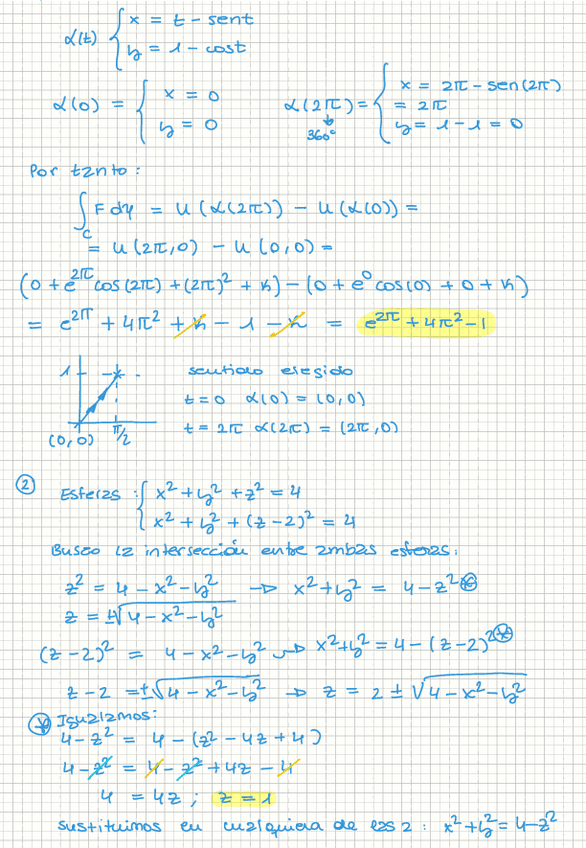 α(t) { x = t - sent
y = 1 - cost
α(0) = { x = 0
y = 0
α(2π) = { x = 2π - sen(2π)
= 2π
y = 1 - 1 = 0
360°
Por tanto:
∫_C F dy = u(α(2π)) - u(α(0)) =
= u(2π,0) - u(0,0) =
(0 + e^{2π} cos(2π) + (2π)² + K) - (0 + e⁰ cos(0) + 0 + K)
= e^{2π} + 4π² + K - 1 - K = e^{2π} + 4π² - 1
1
(0,0) π/2
sentido elegido
t = 0 α(0) = (0,0)
t = 2π α(2π) = (2π,0)
② Esferas: { x² + y² + z² = 4
x² + y² + (z - 2)² = 4
Busco la intersección entre ambas esferas:
z² = 4 - x² - y² → x² + y² = 4 - z² ⊛
z = ±√(4 - x² - y²)
(z - 2)² = 4 - x² - y² → x² + y² = 4 - (z - 2)² ⊛
z - 2 = ±√(4 - x² - y²) → z = 2 ± √(4 - x² - y²)
⊛ Igualamos:
4 - z² = 4 - (z² - 4z + 4)
4 - z² = 4 - z² + 4z - 4
4 = 4z ; z = 1
sustituimos en cualquiera de las 2 : x² + y² = 4 - z²